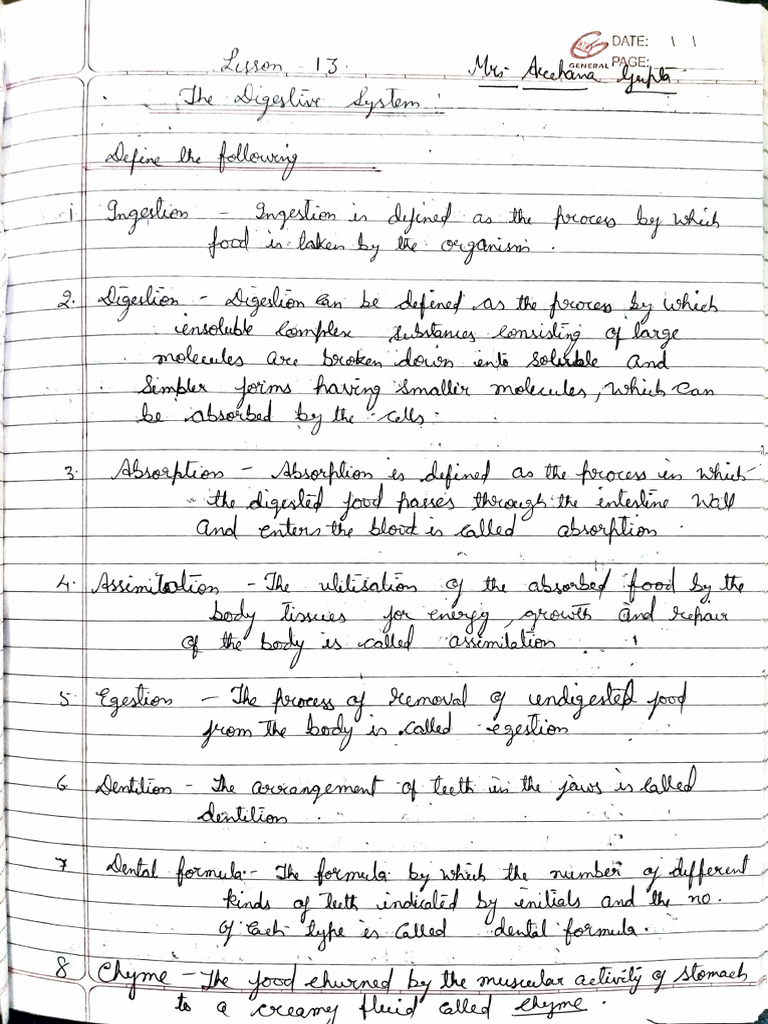 DATE: 1 1
GENERAL PAGE:
Lesson - 13.
Mrs Archana Gupta
The Digestive System :
Define the following
1 Ingestion - Ingestion is defined as the process by which
food is taken by the organism.
2. Digestion - Digestion can be defined as the process by which
insoluble complex substances consisting of large
molecules are broken down into soluble and
simpler forms having smaller molecules, which can
be absorbed by the cells.
3. Absorption - Absorption is defined as the process in which
the digested food passes through the intestine wall
and enters the blood is called absorption.
4. Assimilation - The utilisation of the absorbed food by the
body tissues for energy, growth and repair
of the body is called assimilation
5. Egestion - The process of removal of undigested food
from the body is called egestion
6. Dentition - The arrangement of teeth in the jaws is called
dentition.
7 Dental formula:- The formula by which the number of different
kinds of teeth indicated by initials and the no.
of each type is called dental formula.
8 Chyme - The food churned by the muscular activity of stomach
to a creamy fluid called chyme.